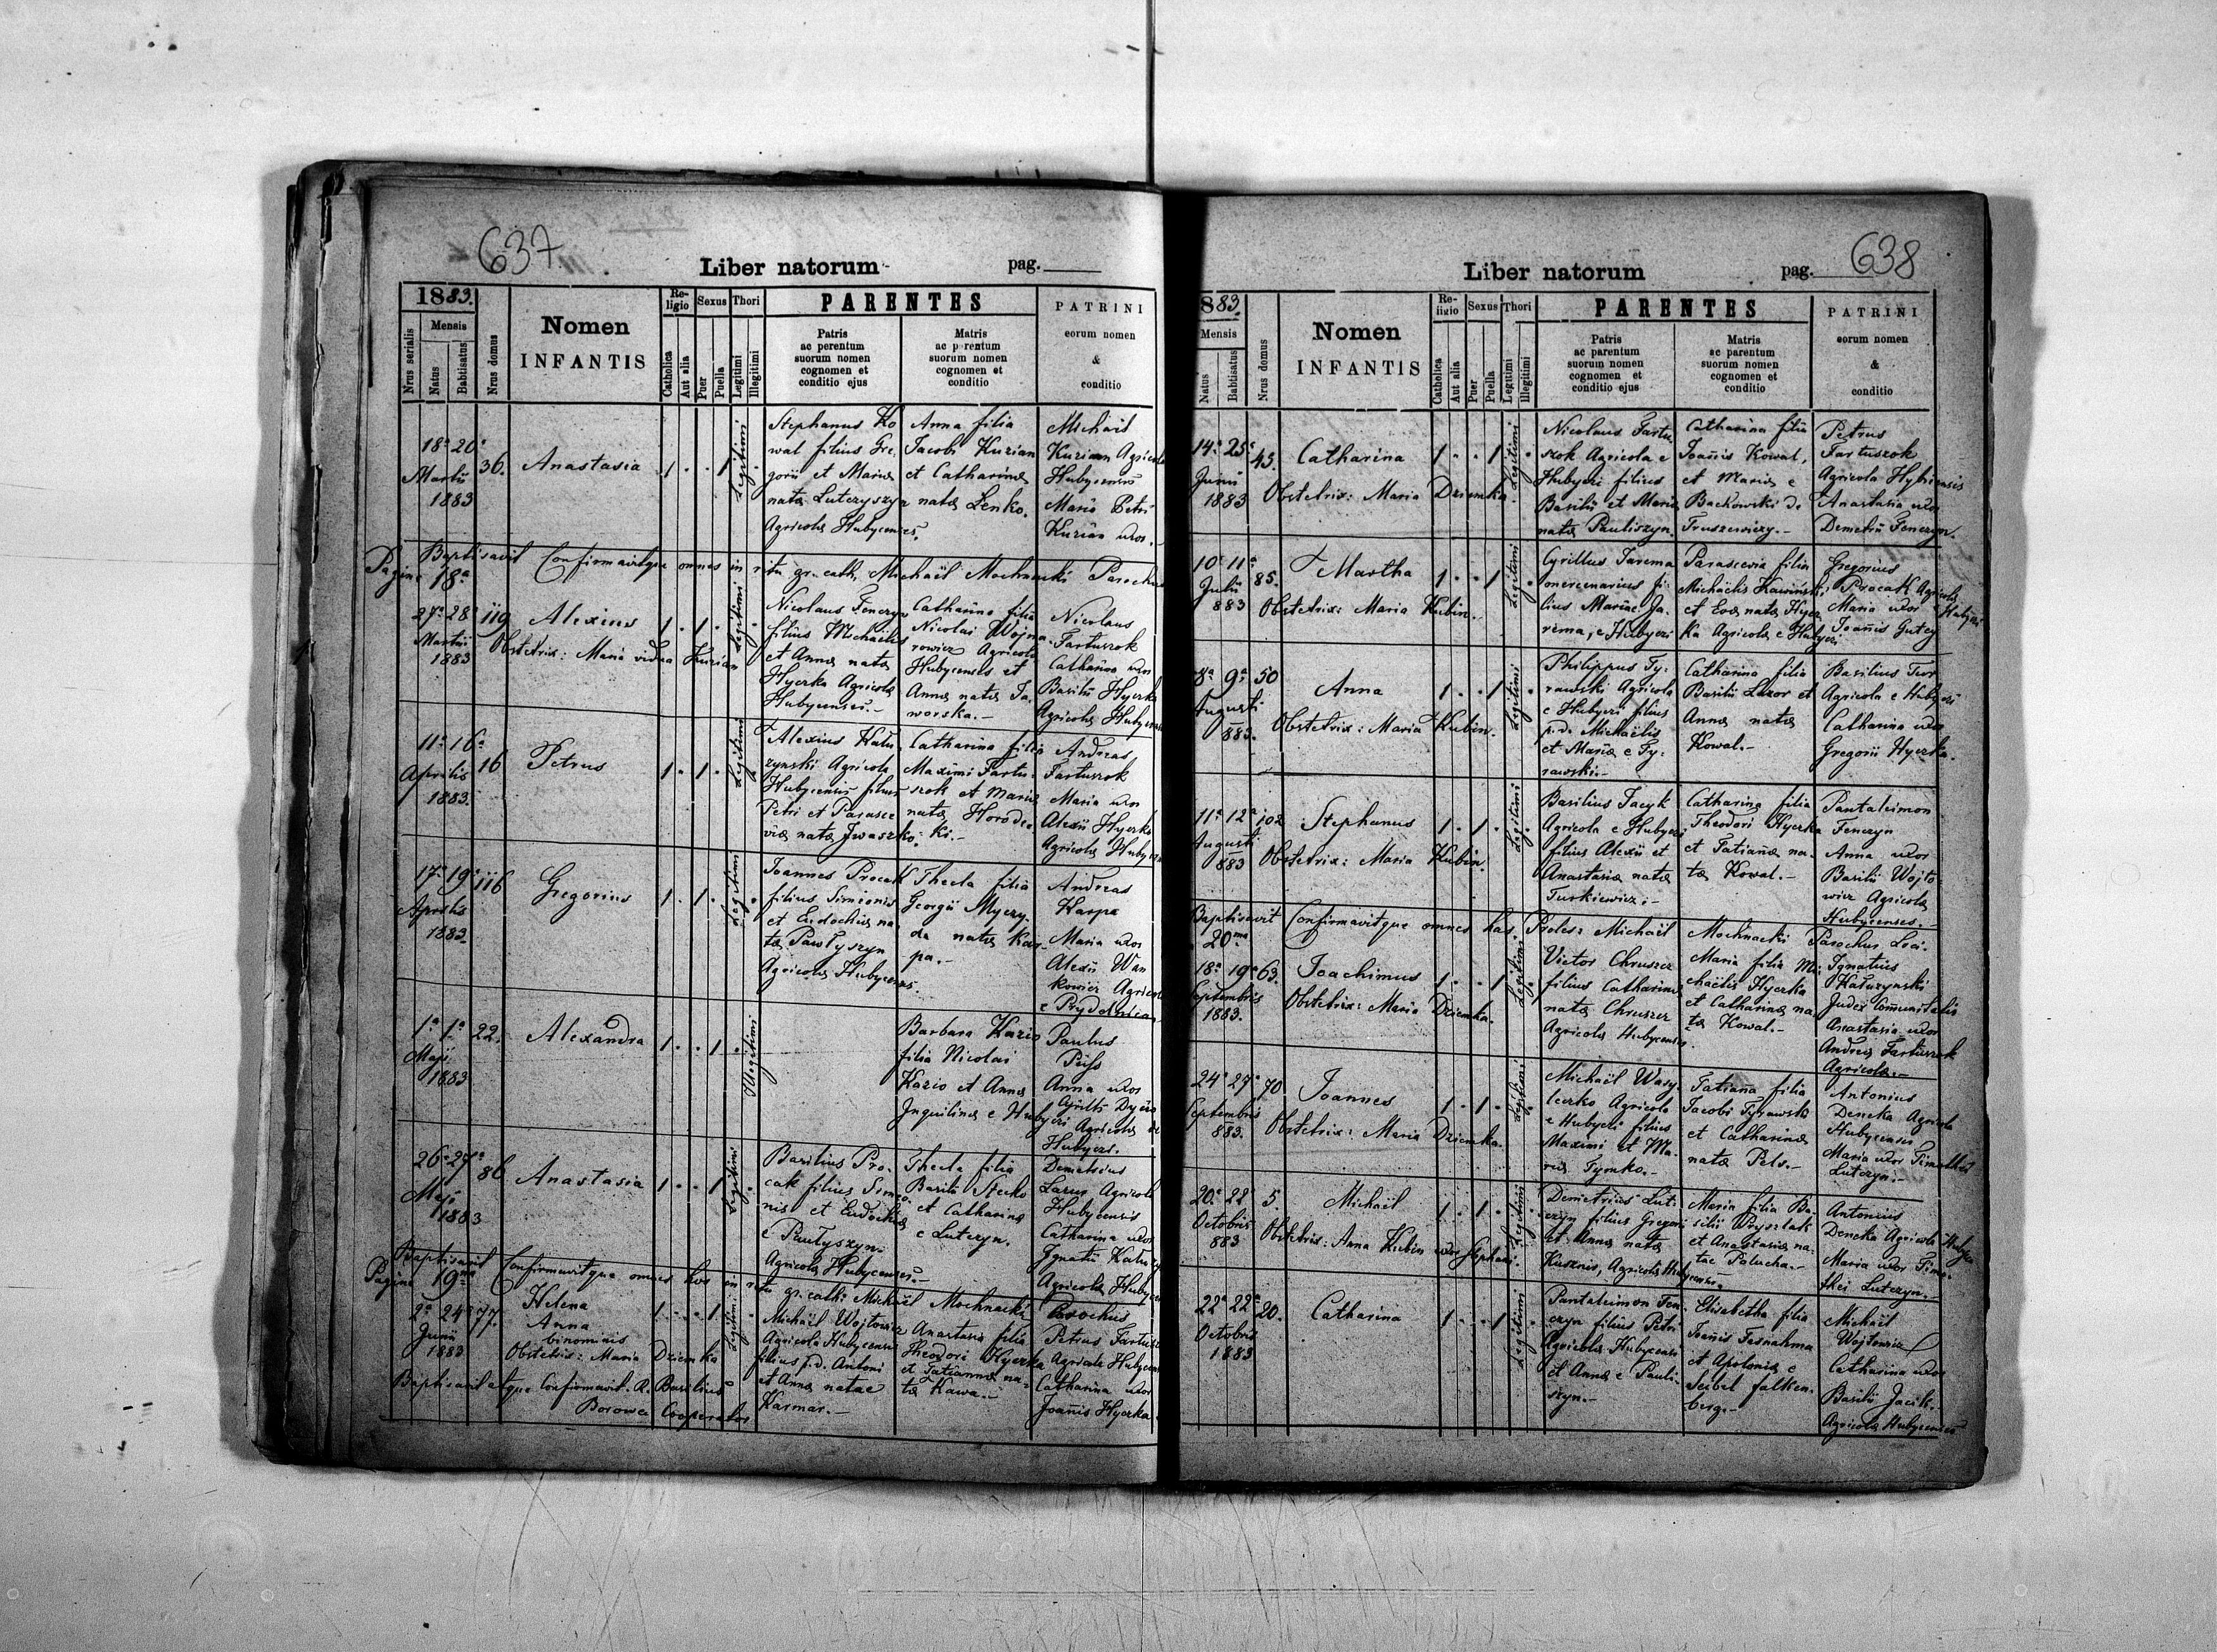 637
Liber natorum
pag.
1883.
Nrus serialis
Mensis
Natus
Babtisatus
Nrus domus
Nomen
INFANTIS
Religio
Catholica
Aut alia
Sexus
Puer
Puella
Thori
Legitimi
Illegitimi
PARENTES
Patris
ac parentum
suorum nomen
cognomen et
conditio ejus
Matris
ac parentum
suorum nomen
cognomen et
conditio
PATRINI
eorum nomen
&
conditio
18a 20a
Martii
1883
36.
Anastasia
1 . . 1 .
Legitimi
Stephanus Ko
wal filius Gre-
gorii et Mariæ
natæ Luterzyszyn
Agricolæ Hubycenses.
Anna filia
Jacobi Kurian
et Catharinæ
natæ Lenko.
Michael
Kurian Agricola
Hubycensis
Maria Petri
Kurian uxor.
Baptisavit Confirmavitque omnes in ritu gr. cath. Michaël Mochnacki Parochus
Pagina 18a
27a 28a
Martii
1883
119
Alexius
Obstetrix: Maria vidua Kurian
1 . 1 . .
Legitimi
Nicolaus Fenczyn
filius Michaëlis
et Annæ natæ
Hyerka Agricola
Hubycensis.-
Catharina filia
Nicolai Wojna-
rowicz Agricola
Hubycensis et
Annæ natæ Ja-
worska.-
Nicolaus
Fartuszok
Catharina uxor
Basilii Hyerka
Agricolæ Hubycenses
11a 16a
Aprilis
1883.
16
Petrus
1 . 1 .
Legitimi
Alexius Katu-
zynski Agricola
Hubycensis filius
Petri et Parasce
viæ natæ Jwaszko.
Catharina filia
Maximi Fartu-
szok et Mariæ
natæ Horodec-
ki.-
Andreas
Fartuszok
Maria uxor
Alexii Hyerka
Agricolæ
17a 19a
Aprilis
1883
116
Gregorius
1 . 1 . .
Legitimi
Joannes Procak
filius Simeonis
et Eudochiæ na-
tæ Pawłyszyn
Agricola Hubycensis.
Thecla filia
Georgii Myczy-
da natæ Kar-
pa.-
Andreas
Karpa
Maria uxor
Alexii Wan
kowicz Agricola
1a 1a
Maji
1883
22.
Alexandra
1 . . 1 .
Illegitimi
Barbara Kazio
filia Nicolai
Kazio et Annæ
Jnquilina e Hubyczi
Paulus
Anna uxor
Agricolæ de
Hubyczi.
26a 27a
Maji
1883
86
Anastasia
1 . . 1 .
Legitimi
Basilius Pro-
cak filius Simeo-
nis et Eudochiæ
e Pawłyszyn
Agricola Hubycensis.-
Thecla filia
Basilii Stecko
et Catharinæ
e Luterzyn.
Demetrius
Lazur Agricola
Hubycensis
Catharina uxor
Ignatii
Agricolæ
Baptisavit Confirmavitque omnes hos in ritu gr. cath: Michaël Mochnacki Parochus
Pagina 19na
2a 24a
Junii
1883
77.
Helena
Anna
binominis
Obstetrix: Maria Dziemka
1 . . 1 .
Legitimi
Michaël Wojtowicz
Agricola Hubycensis
filius p.d. Antoni
et Annæ natae
Karmar.-
Anastasia filia
Theodori Hyerka
et Tatiannæ na-
tæ Kawa.-
Petrus
Agricola
Catharina uxor
Joannis Hyerka
Baptisavit atque Confirmavit. R. Basilius
Borowec Cooperator
638
Liber natorum
pag.
1883.
Mensis
Natus
Babtisatus
Nrus domus
Nomen
INFANTIS
Religio
Catholica
Aut alia
Sexus
Puer
Puella
Thori
Legitimi
Illegitimi
PARENTES
Patris
ac parentum
suorum nomen
cognomen et
conditio ejus
Matris
ac parentum
suorum nomen
cognomen et
conditio
PATRINI
eorum nomen
&
conditio
14a 25a
Junii
1883
43.
Catharina
Obstetrix: Maria Dziemka.
1 . . 1 .
Legitimi
Nicolaus Fartu-
szok Agricola e
Hubyczi filius
Basilii et Mariæ
natæ Pauliszyn.
Catharina filia
Joannis Kowal,
et Mariæ e
Bachowski de
Truszewiczy.-
Petrus
Fartuszok
Agricola
Anastasia uxor
Demetrii Fenczyn.
10a 11a
Julii
883
85.
Martha
Obstetrix: Maria Kubin.
1 . . 1 .
Legitimi
Cyrillus Jarema
mercenarius fi-
lius Mariæ Ja-
rema, e Hubyczi
Parascevia filia
Michaëlis Kawinski
et Evæ natæ Hyer-
ka Agricola e Hubyczi
Gregorius
Procak Agricola
Maria uxor
Joannis Gutey
8a 9a
Augusti
883.
50
Anna
Obstetrix: Maria Kubin.
1 . . 1 .
Legitimi
Philippus Ty-
rawski Agricola
e Hubyczi filius
p.d. Michaëlis
et Mariæ e Ty-
rawski.-
Catharina filia
Basilii Lazor et
Annæ natæ
Kowal.-
Basilius
Agricola e Hubyczi
Catharina uxor
Gregorii Hyerka.
11a 12a
Augusti
883
102
Stephanus
Obstetrix: Maria Kubin.
1 . 1 .
Legitimi
Basilius Jacyk
Agricola e Hubyczi
filius Alexii et
Anastasiæ natæ
Turkiewicz.-
Catharina filia
Theodori Hyerka
et Tatianæ na-
tæ Kowal.-
Pantaleimon
Fenczyn
Anna uxor
Basilii Wojto-
wicz Agricolæ
Hubycenses.-
Baptisavit Confirmavitque omnes has Proles: Michaël Mochnacki Parochus Loci.
20ma
18a 19a
Septembris
1883.
63.
Joachimus
Obstetrix: Maria Dziemka.
1 . . 1 .
Legitimi
Victor Chruszcz
filius Catharinæ
natæ Chruszcz
Agricola Hubycensis
Maria filia Mi-
chaëlis Hyerka
et Catharinæ na-
tæ Kowal.-
Ignatius
Katuzynski
Judex Communitatis
Anastasia uxor
Andreæ Fartuszok
Agricolæ.-
24a 27a
Septembris
883.
70
Joannes
Obstetrix: Maria Dziemka.
1 . 1 .
Legitimi
Michaël Wasy-
leczko Agricola
e Hubyczi filius
Maximi et Ma-
riæ Tymko.-
Tatiana filia
Jacobi Tyrawski
et Catharinæ
natæ Pelz.-
Antonius
Deneka Agricola
Hubycensis
Maria uxor Timothei
Luterzyn.-
20a 22
Octobris
883
5.
Michaël
Obstetrix: Anna Kubin uxor Stephani.
1 . 1 . .
Legitimi
Demetrius Lut-
erzyn filius Gregorii
et Annæ natæ
Kusznir, Agricola Hubycensis.
Maria filia Ba-
silii Wrysztak
et Anastasiæ na-
tae Palucha.-
Antonius
Deneka Agricola
Maria uxor Timo-
thei Luterzyn.-
22a 22a
Octobris
1883
20.
Catharina
1 . . 1 .
Legitimi
Pantaleimon Fen-
czyn filius Petri
Agricola Hubycensis
et Annæ e Pauli-
szyn.-
Elisabetha filia
Joannis
et Apoloniæ e
Seibel falken-
berg.-
Michaël
Wojtowicz
Catharina uxor
Basilii Jacik.
Agricolæ Hubycenses